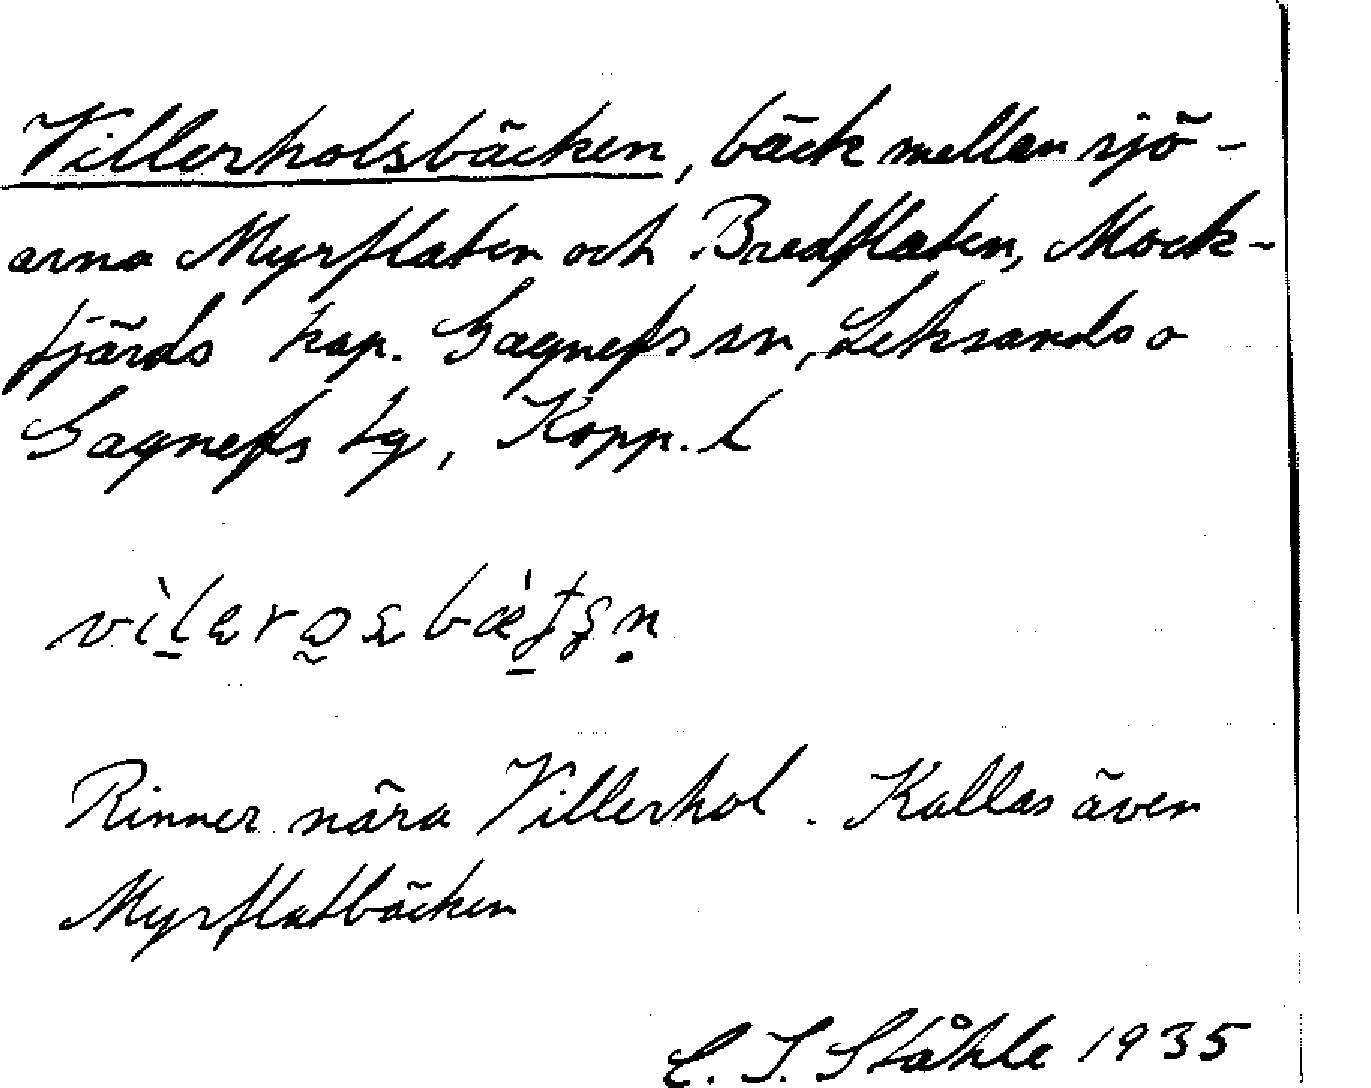 Villerholsbäcken, bäck mellan sjö-
arna Myrflaten och Bredflaten, Mock-
fjärds kap. Gagnefs sn, Leksands o
Gagnefs tg, Kopp. l
Rinner nära Villerhol. Kallas även
Myrflatbäcken
C. I. Ståhle 1935